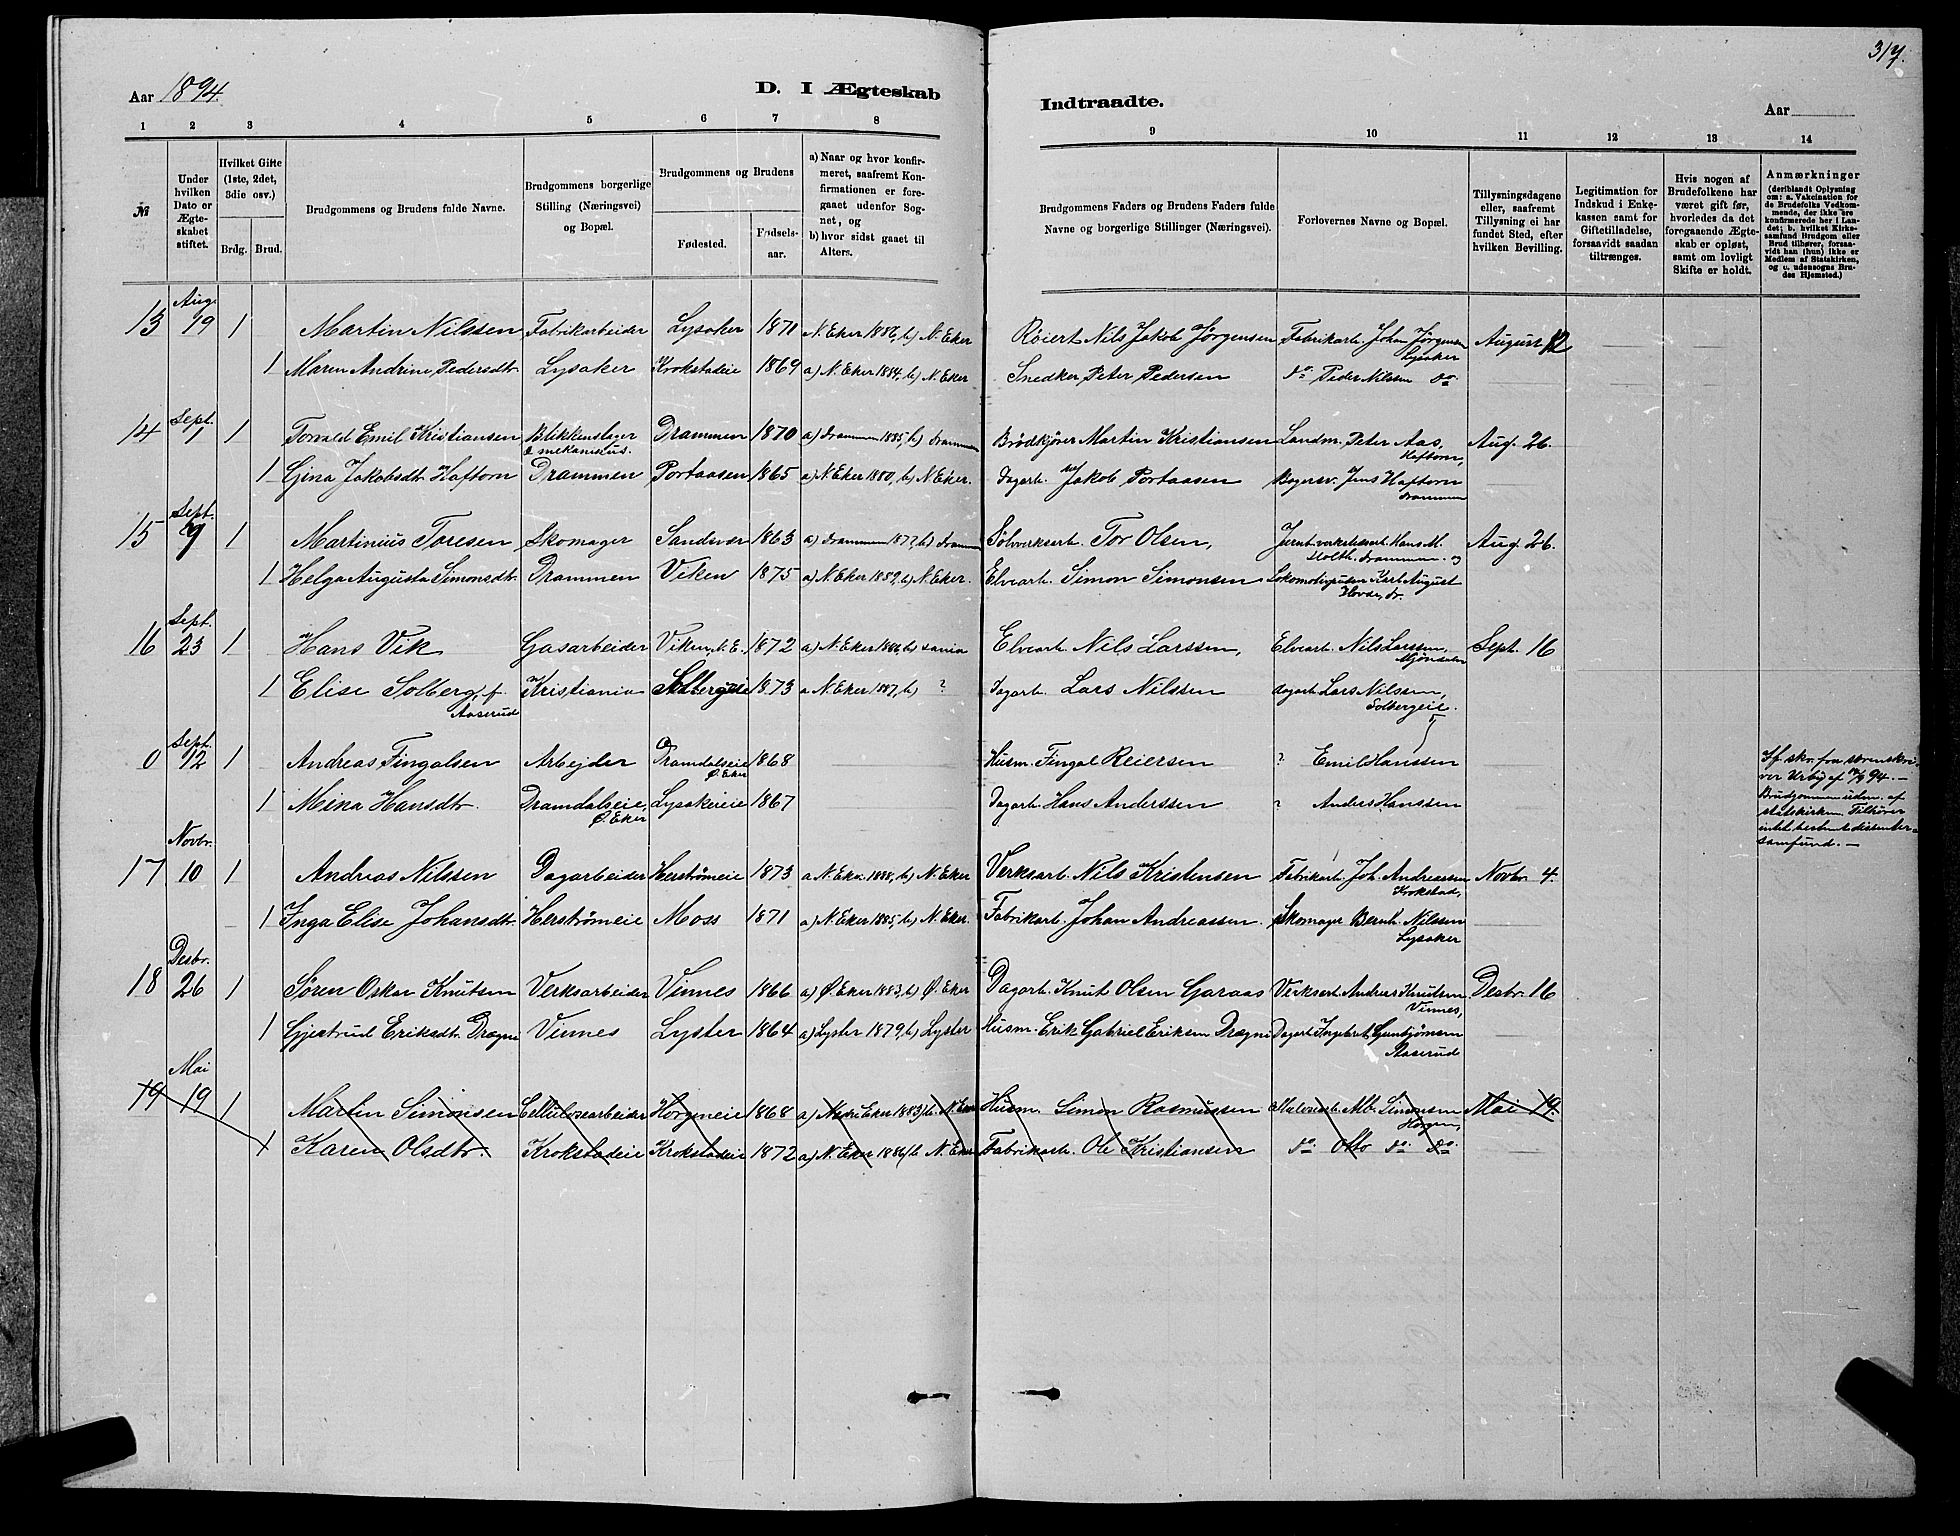 317.
Aar 1894.
D. I Ægteskab
Indtraadte.
Aar
1 2 3 4 5 6 7 8 9 10 11 12 13 14
№
Under hvilken Dato er Ægteskabet stiftet.
Hvilket Gifte (1ste, 2det, 3die osv.)
Brdg. Brud.
Brudgommens og Brudens fulde Navne.
Brudgommens borgerlige Stilling (Næringsvei) og Bopæl.
Brudgommens og Brudens
Fødested. Fødsels-aar.
a) Naar og hvor konfirmeret, saafremt Konfirmationen er foregaaet udenfor Sognet, og
b) hvor sidst gaaet til Alters.
Brudgommens Faders og Brudens Faders fulde Navne og borgerlige Stillinger (Næringsvei).
Forlovernes Navne og Bopæl.
Tillysningsdagene eller, saafremt Tillysning ei har fundet Sted, efter hvilken Bevilling.
Legitimation for Indskud i Enkekassen samt for Giftetilladelse, forsaavidt saadan tiltrænges.
Hvis nogen af Brudefolkene har været gift før, hvorledes da det foregaaende Ægteskab er opløst, samt om lovligt Skifte er holdt.
Anmærkninger
(deriblandt Oplysning om: a. Vakcination for de Brudefolks Vedkommende, der ikke ere konfirmerede her i Landet; b. hvilket Kirkesamfund Brudgom eller Brud tilhører, forsaavidt han (hun) ikke er Medlem af Statskirken, og c. udensogns Brudes Hjemsted.)
13 Aug. 19 1 Martin Nilssen Fabrikarbeider Lysaker 1871 N. Eker 1886, b) N. Eker Røiert Nils Jakob Jørgensen Fabrikarb. Johan Jørgensen Lysaker August 12
1 Maren Andrine Pedersdtr. Lysaker Krokstadeie 1869 a) N. Eker 1884, b) N. Eker Snedker Peter Pedersen do Peder Nilssen do
14 Sept. 1 1 Torvald Emil Kristiansen Blikkenslager & mekanikus. Drammen 1870 a) Drammen 1885, b) Drammen Brødkjører Martin Kristiansen Landm. Peter Aas, Haftorn, Aug. 26.
1 Gina Jakobsdtr. Haftorn Drammen Portaasen 1865 a) N. Eker 1880, b) N. Eker. Dagarb. Jakob Portaasen Jens Haftorn Drammen
15 Sept. 9 1 Martinius Toresen Skomager Sandsvær 1863 a) Drammen 1877, b) Drammen Sølvverksarb. Tor Olsen, Hans M. Holth. Drammen. og Aug. 26.
1 Helga Augusta Simonsdtr. Drammen Viken 1875 a) N. Eker 1889, b) N. Eker. Elvearb. Simon Simonsen Lokomotivpudser Karl August Hovde, dr.
16 Sept. 23 1 Hans Vik Gasarbeider Viken, N. E. 1872 a) N. Eker 1886, b) sania Elvearb. Nils Larssen, Elvearb. Nils Larssen, Mjøndalen Sept. 16
1 Elise Solberg, f. Aaserud Kristiania Solbergeie 1873 a N. Eker 1887, b) ? Dagarb. Lars Nilssen Dagarb Lars Nilssen, Solbergeie.
0 Sept. 12 1 Andreas Fingalsen Arbejder Dramdalseie Ø. Eker 1868 Husm. Fingal Reiersen ? Emil Hanssen
If. skr. fra sorenskriver Urbye af 12/9 94. — Brudgommen udm. af statskirken. Tilhører intet bestemt dissentersamfund. —
1 Mina Hansdtr. Dramdalseie, Ø. Eker Lysakereie 1867 Dagarb. Hans Anderssen ? Anders Hanssen
17 Novbr. 10 1 Andreas Nilssen Dagarbeider Herstrømeie 1873 a N. Eker 1888, b) N. Eker Verksarb. Nils Kristensen Fabrikarb. Joh. Andreassen Krokstad, Novbr. 4.
1 Inga Elise Johansdtr. Herstrømeie Moss 1871 a) N. Eker 1885, b) N. Eker. Fabrikarb. Johan Andreassen. Skomager Bernh. Nilssen Lysaker
18 Desbr. 26 1 Søren Oskar Knutsen Verksarbeider Vinnes 1866 a) Ø. Eker 1883, b) Ø. Eker Dagarb. Knut Olsen Garaas Verksarb Andreas Knutsen Vinnes, Desbr. 16
1 Gjertrud Eriksdtr. Drægni Vinnes Lyster 1864 a) Lyster 1879, b) Lyster Husm. Erik Gabriel Eriksen Drægni Dagarb Ingebret Gunbjørnsen Aaserud
19 Mai 19 1 Martin Simonsen Cellulosearbeider Horgeneie 1868 a) Nedre Eker 1883, b. N. Eker Husm. Simon Rasmussen Alb. Simonsen Horgen, Mai 19.
1 Karen Olsdtr. Krokstadeie Krokstadeie 1872 a) N. Eker 1886, b N. Eker Fabrikarb. Ole Kristiansen do Otto do do